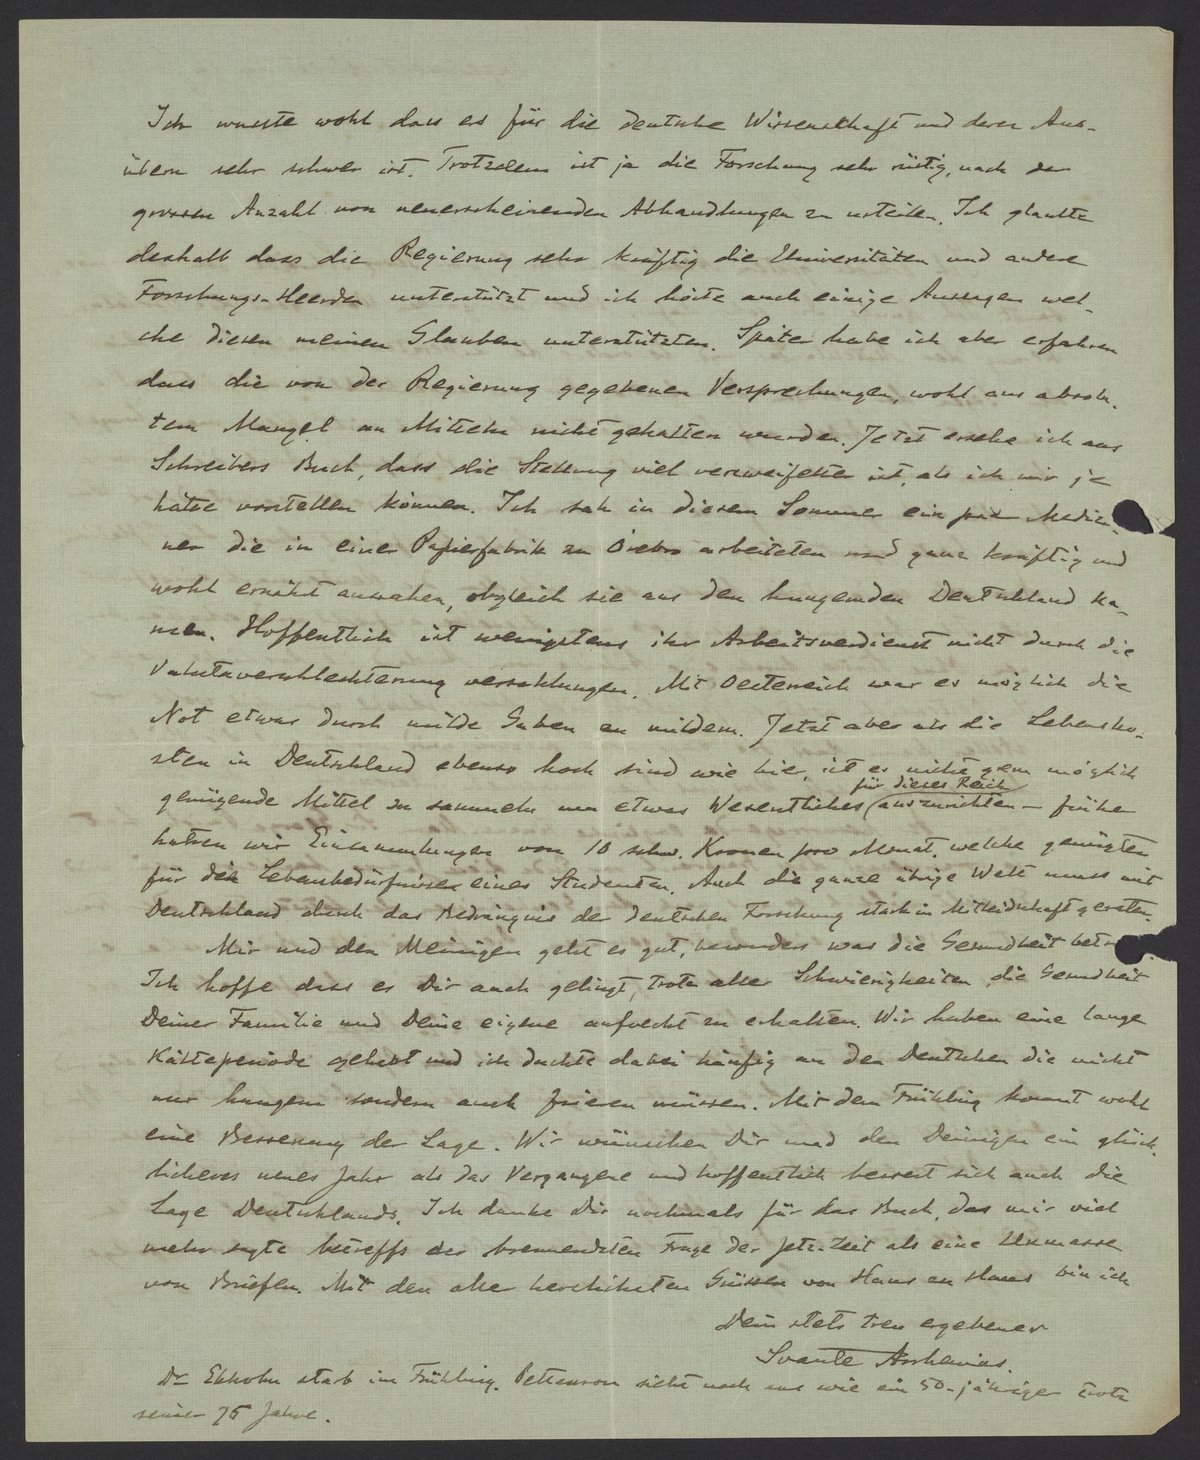 Ich wusste wohl dass es für die deutsche Wissenschaft und deren Aus-
übern sehr schwer ist. Trotzdem ist ja die Forschung sehr rüstig, nach der
grossen Anzahl von neuerscheinenden Abhandlungen zu urteilen. Ich glaubte
deshalb dass die Regierung sehr kräftig die Universitäten und andere
Forschungs-Heerden unterstützt und ich hörte auch einige Aussagen wel-
che diesen meinen Glauben unterstützten. Später habe ich aber erfahren
dass die von der Regierung gegebenen Versprechungen, wohl aus absolu-
tem Mangel an Mitteln nicht gehalten wurden. Jetzt ersehe ich aus
Schreibers Buch, dass die Stellung viel verzweifelter ist, als ich mir je
hätte vorstellen können. Ich sah in diesem Sommer ein par Medici
ner die in einer Papierfabrik zu Örebro arbeiteten und ganz kräftig und
wohl ernährt aussahen, obgleich sie aus den hungernden Deutschland ka-
men. Hoffentlich ist wenigstens ihr Arbeitsverdienst nicht durch die
Valutaverschlechterung verschlungen. Mit Oesterreich war es möglich die
Not etwas durch milde Gaben zu mildern. Jetzt aber als die Lebensko-
sten in Deutschland ebenso hoch sind wie hier, ist es nicht gern möglich
für dieses Reich
genügende Mittel zu sammeln um etwas Wesentliches (auszurichten – früher
hatten wir Einsammlungen von 10 schw. Kronen pro Monat, welche genügten
für die Lebensbedürfnisse eines Studenten. Auch die ganze übrige Welt muss mit
Deutschland durch das Bedrängnis der deutschen Forschung stark in Mitleidschaft geraten.
Mir und den Meinigen geht es gut, besonders was die Gesundheit betr
Ich hoffe dass es Dir auch gelingt, trotz aller Schwierigkeiten, die Gesundheit
Deiner Familie und Deine eigene aufrecht zu erhalten. Wir haben eine lange
Kälteperiode gehabt und ich dachte dabei häufig an den Deutschen die nicht
nur hungern sondern auch frieren müssen. Mit dem Frühling kommt wohl
eine Besserung der Lage. Wir wünschen Dir und den Deinigen ein glück-
licheres neues Jahr als das Vergangene und hoffentlich bessert sich auch die
Lage Deutschlands. Ich danke Dir nochmals für das Buch, das mir viel
mehr sagte betreffs der brennendsten Frage der Jetzt-Zeit als eine Unmasse
von Briefen. Mit den aller herzlichsten Grüssen von Haus zu Haus bin ich
Dein stets treu ergebener
Svante Arrhenius.
Dr Ekholm starb im Frühling. Pettersson sieht noch aus wie ein 50-jähriger trotz
seiner 75 Jahre.